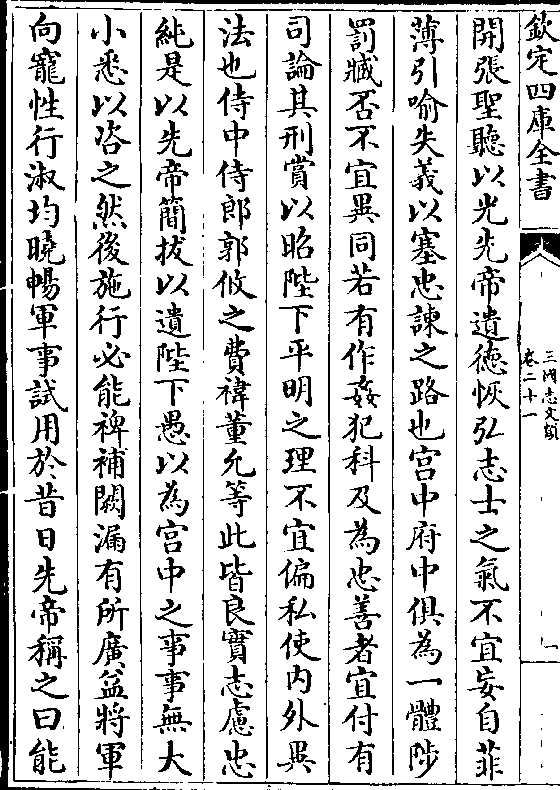 欽定四庫全書
三國志文類
卷二十一
一
開張聖聽以光先帝遺德恢弘志士之氣不宜妄自菲
薄引喻失義以塞忠諫之路也宫中府中俱為一體陟
罰臧否不宜異同若有作姦犯科及為忠善者宜付有
司論其刑賞以昭陛下平明之理不宜偏私使内外異
法也侍中侍郎郭攸之費禕董允等此皆良實志慮忠
純是以先帝簡拔以遺陛下愚以為宫中之事事無大
小悉以咨之然後施行必能裨補闕漏有所廣益將軍
向寵性行淑均曉暢軍事試用於昔日先帝稱之曰能